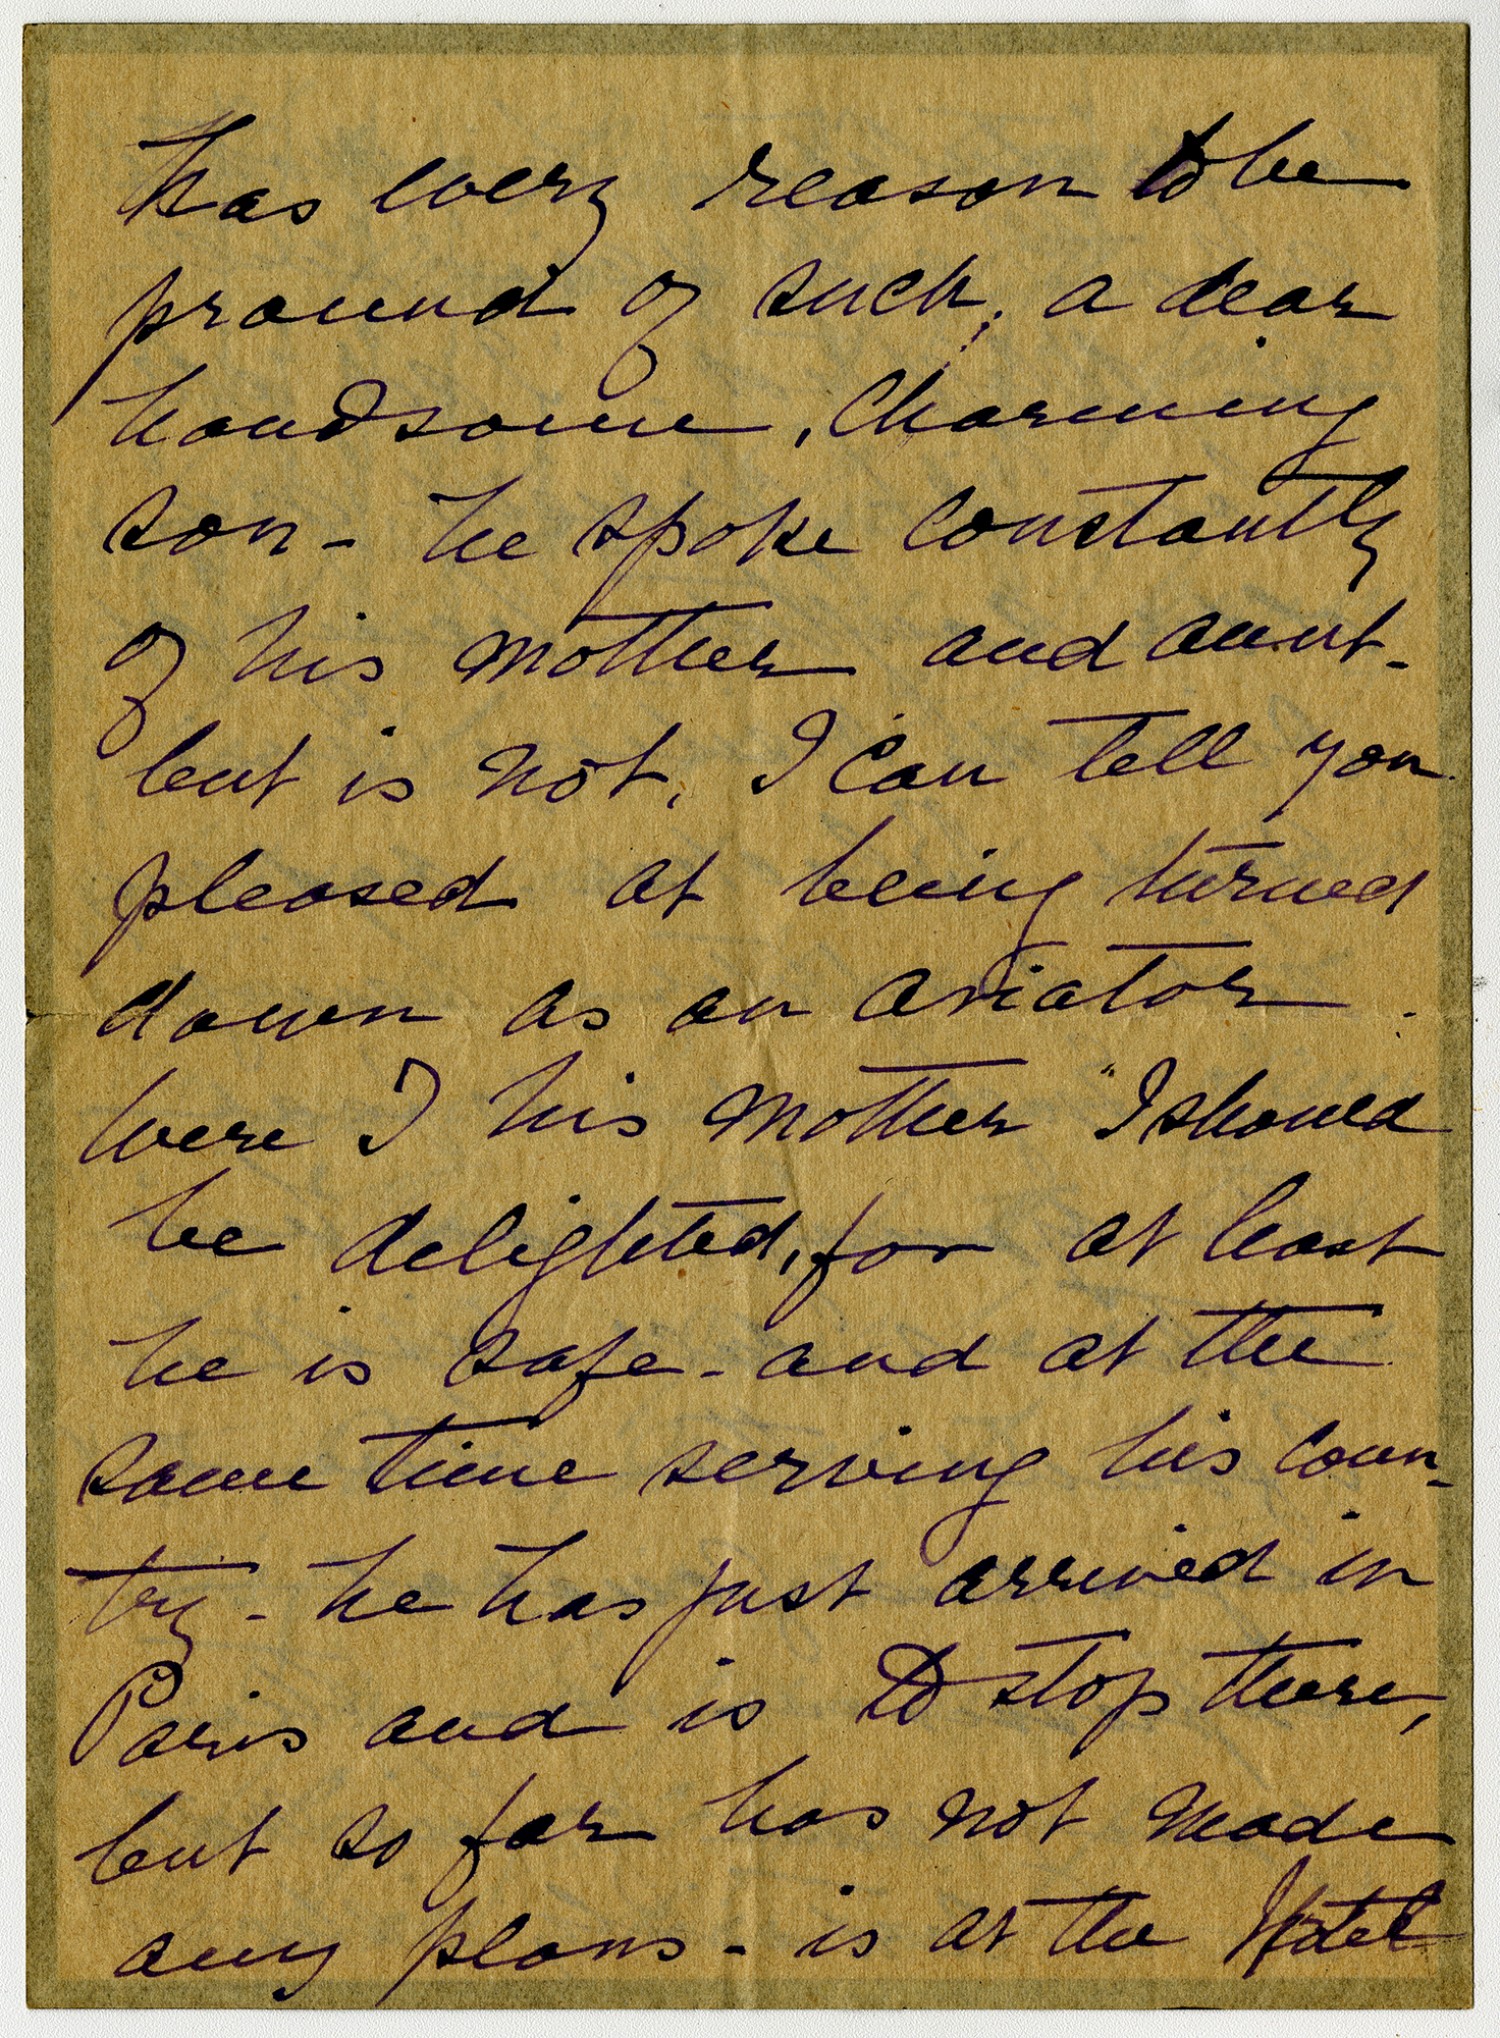 has every reason to be
proud of such, a dear
handsome, charming
son - he spoke constantly
of his mother and aunt -
but is not, I can tell you
pleased at being turned
down as an aviator.
were I his mother I should
be delighted, for at least
he is safe - and at the
same time serving his coun-
try - he has just arrived in
Paris and is to stop there,
but so far has not made
any plans - is at the Hotel